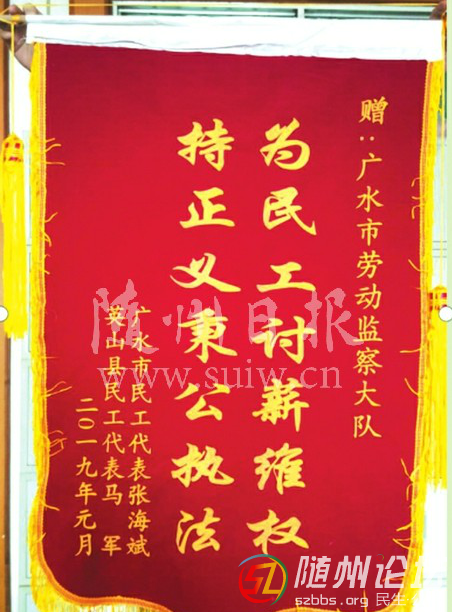 赠:广水市劳动监察大队
为民工讨薪维权
持正义秉公执法
广水市民工代表张海斌
英山县民工代表马 军
二0一九年元月
随州日报
www.suiw.cn
随州论坛
szbbs.org 民生